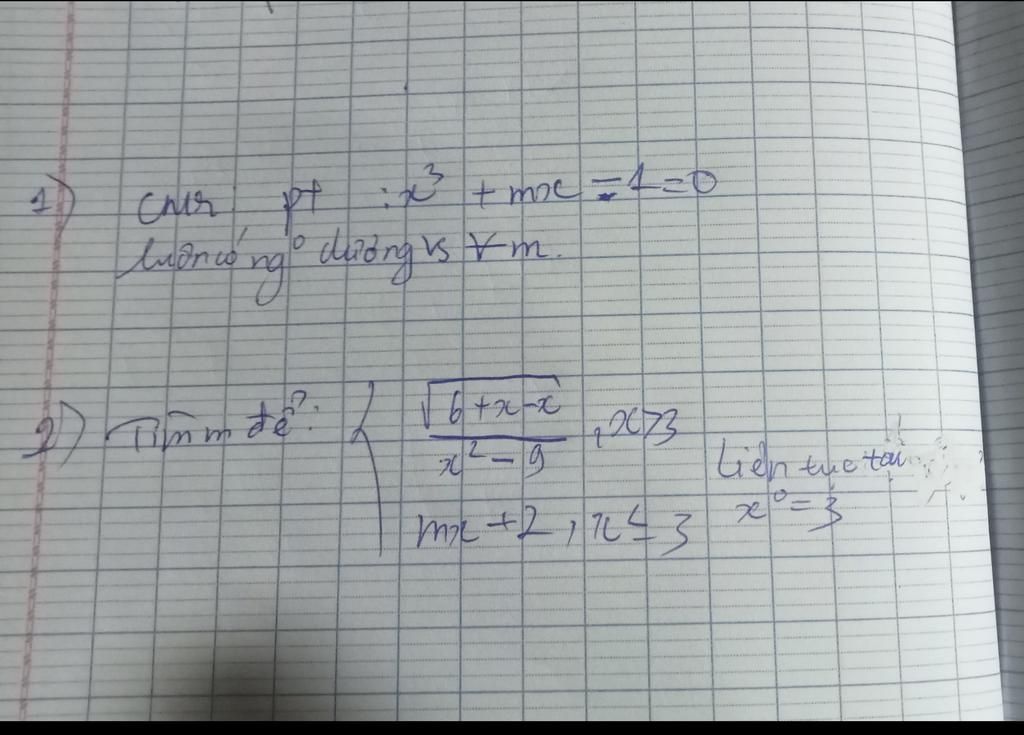 1) CMR pt : x³ + mx - 1 = 0
luôn có ng° dương vs ∀ m.
2) Tìm m để : { √(6+x-x) / x² - 9 , x>3
mx + 2 , x ≤ 3
liên tục tại
x° = 3